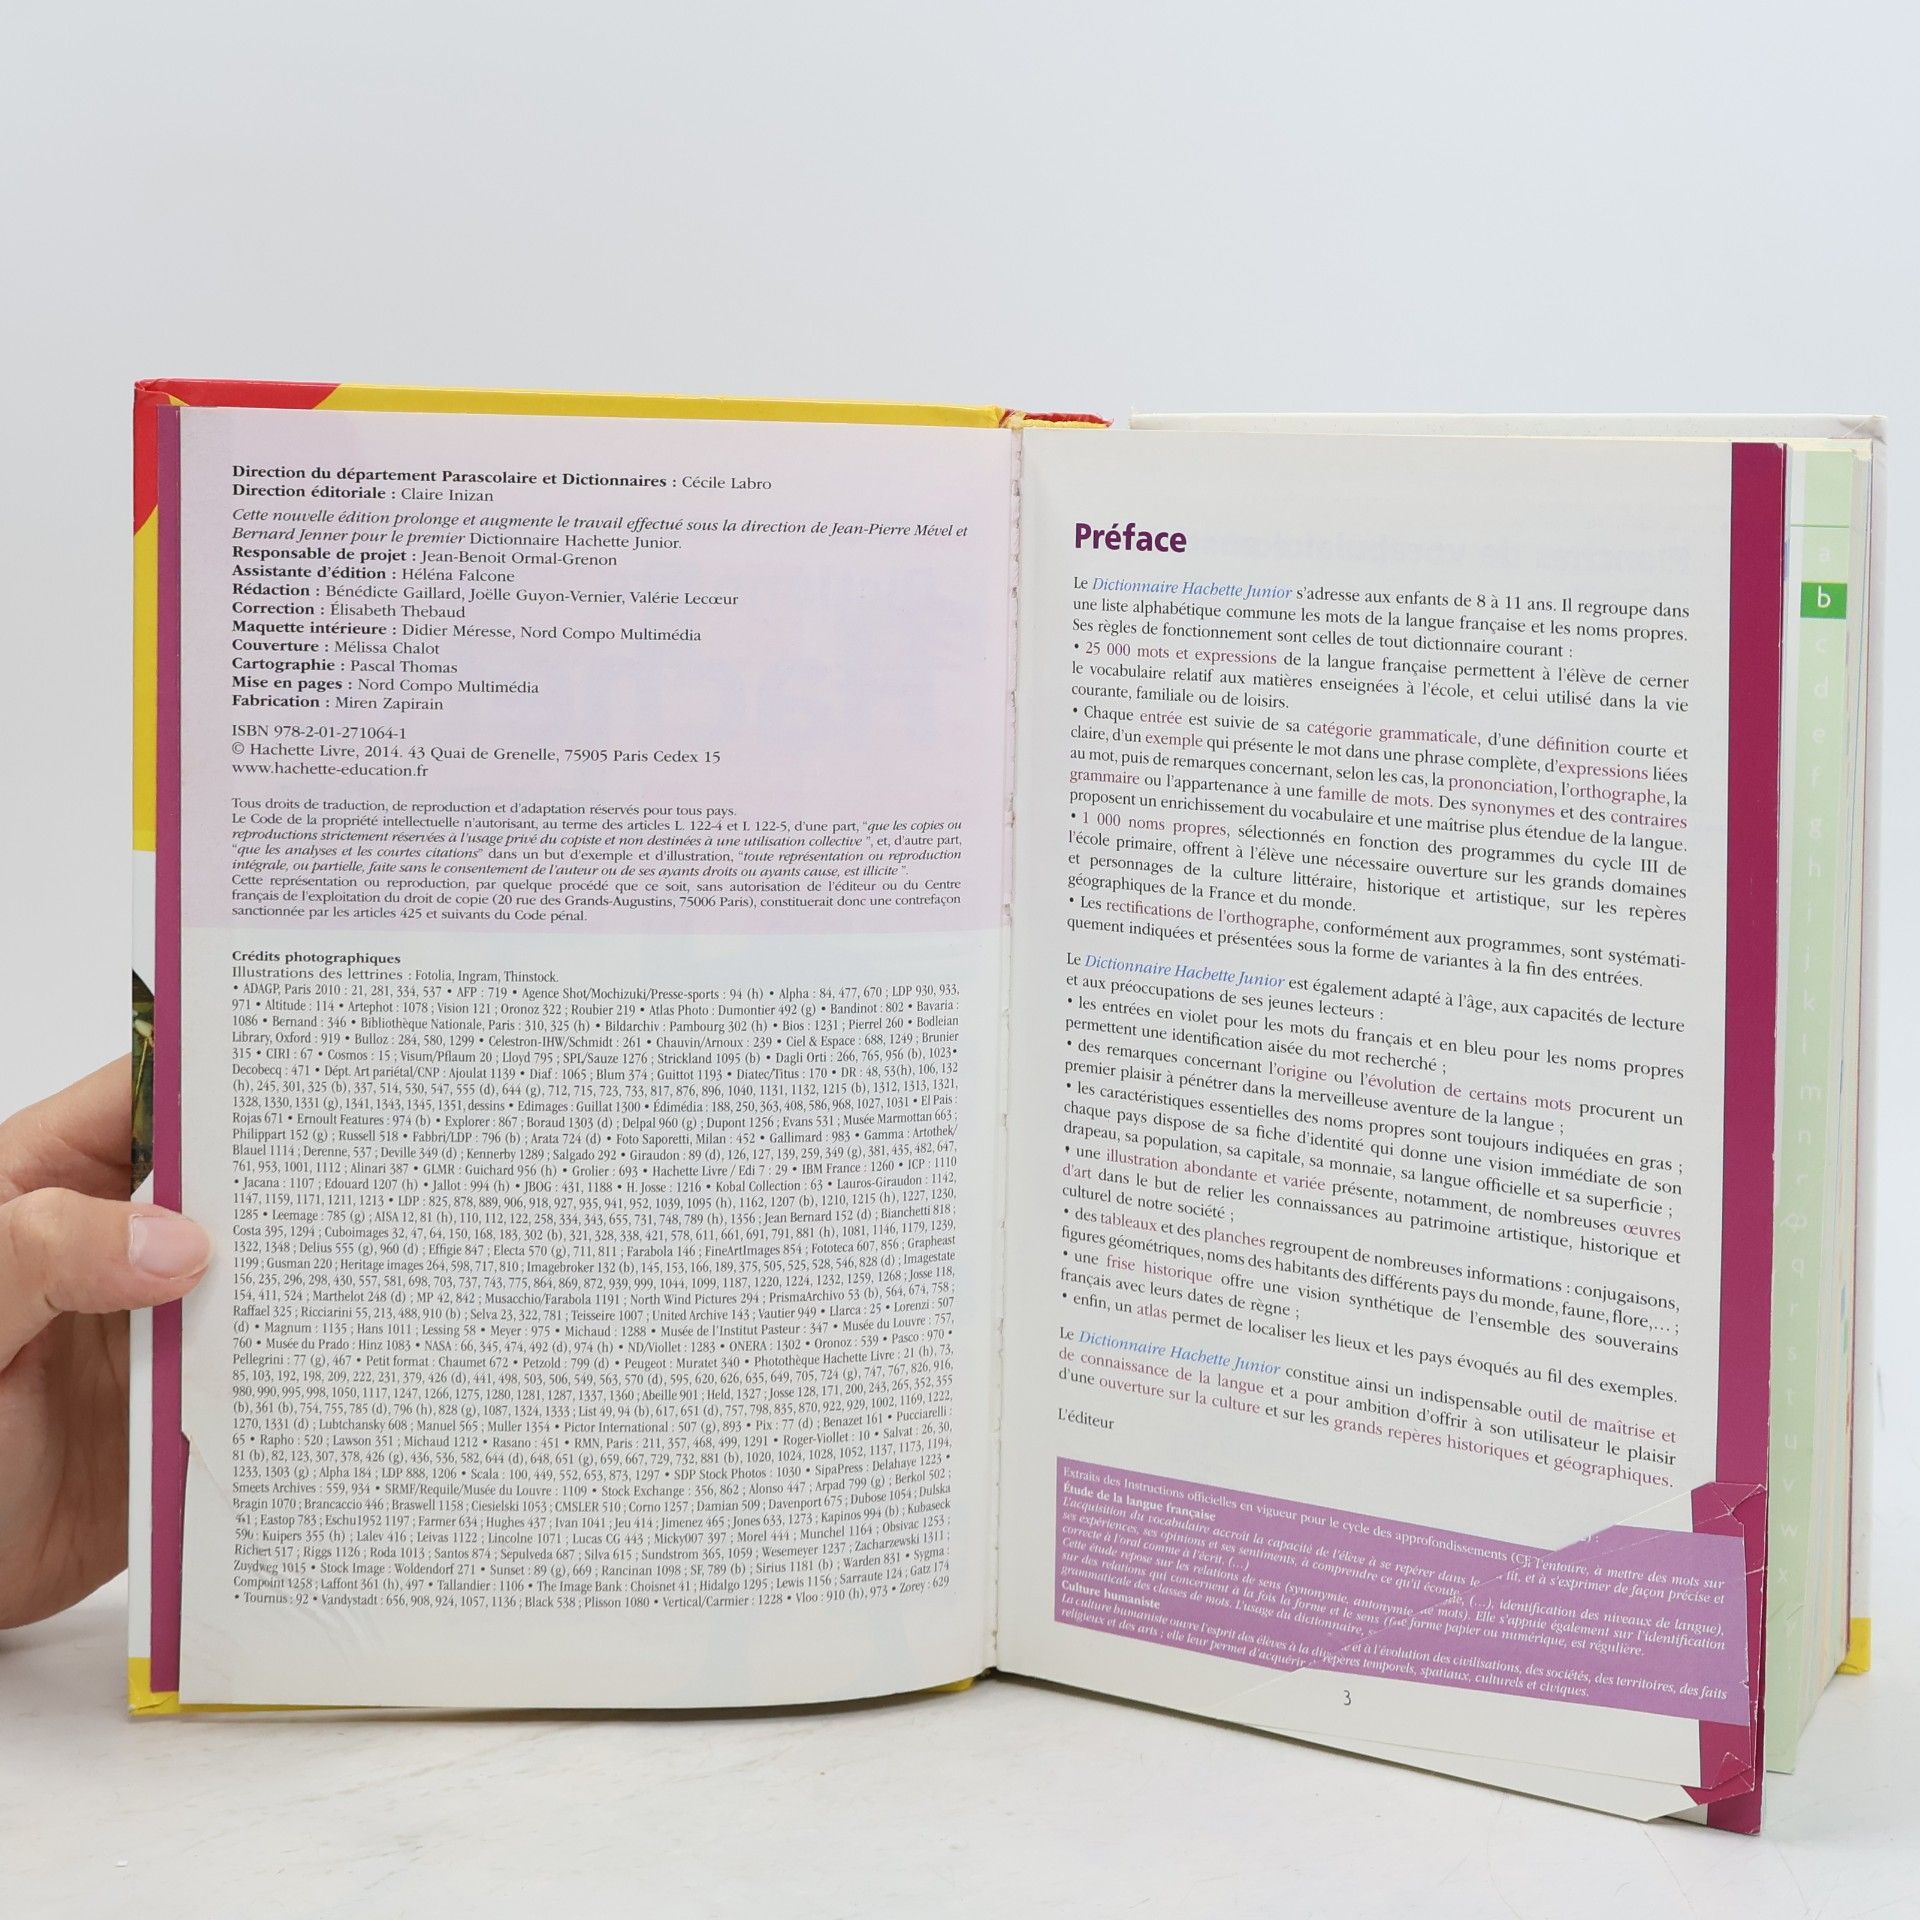 Direction du département Parascolaire et Dictionnaires : Cécile Labro
Direction éditoriale : Claire Inizan
Cette nouvelle édition prolonge et augmente le travail effectué sous la direction de Jean-Pierre Mével et
Bernard Jenner pour le premier Dictionnaire Hachette Junior.
Responsable de projet : Jean-Benoit Ormal-Grenon
Assistante d'édition : Héléna Falcone
Rédaction : Bénédicte Gaillard, Joëlle Guyon-Vernier, Valérie Lecœur
Correction : Élisabeth Thebaud
Maquette intérieure : Didier Méresse, Nord Compo Multimédia
Couverture : Mélissa Chalot
Cartographie : Pascal Thomas
Mise en pages : Nord Compo Multimédia
Fabrication : Miren Zapirain
ISBN 978-2-01-271064-1
© Hachette Livre, 2014. 43 Quai de Grenelle, 75905 Paris Cedex 15
www.hachette-education.fr
Tous droits de traduction, de reproduction et d'adaptation réservés pour tous pays.
Le Code de la propriété intellectuelle n'autorisant, au terme des articles L. 122-4 et L 122-5, d'une part, "que les copies ou
reproductions strictement réservées à l'usage privé du copiste et non destinées à une utilisation collective ", et, d'autre part,
"que les analyses et les courtes citations" dans un but d'exemple et d'illustration, "toute représentation ou reproduction
intégrale, ou partielle, faite sans le consentement de l'auteur ou de ses ayants droits ou ayants cause, est illicite ".
Cette représentation ou reproduction, par quelque procédé que ce soit, sans autorisation de l'éditeur ou du Centre
français de l'exploitation du droit de copie (20 rue des Grands-Augustins, 75006 Paris), constituerait donc une contrefaçon
sanctionnée par les articles 425 et suivants du Code pénal.
Crédits photographiques
Illustrations des lettrines : Fotolia, Ingram, Thinstock.
• ADAGP, Paris 2010 : 21, 281, 334, 537 • AFP : 719 • Agence Shot/Mochizuki/Presse-sports : 94 (h) • Alpha : 84, 477, 670 ; LDP 930, 933,
971 • Altitude : 114 • Artephot : 1078 ; Vision 121 ; Oronoz 322 ; Roubier 219 • Atlas Photo : Dumontier 492 (g) • Bandinot : 802 • Bavaria :
1086 • Bernand : 346 • Bibliothèque Nationale, Paris : 310, 325 (h) • Bildarchiv : Pambourg 302 (h) • Bios : 1231 ; Pierrel 260 • Bodleian
Library, Oxford : 919 • Bulloz : 284, 580, 1299 • Celestron-IHW/Schmidt : 261 • Chauvin/Arnoux : 239 • Ciel & Espace : 688, 1249 ; Brunier
315 • CIRI : 67 • Cosmos : 15 ; Visum/Pflaum 20 ; Lloyd 795 ; SPL/Sauze 1276 ; Strickland 1095 (b) • Dagli Orti : 266, 765, 956 (b), 1023•
Decobecq : 471 • Dépt. Art pariétal/CNP : Ajoulat 1139 • Diaf : 1065 ; Blum 374 ; Guittot 1193 • Diatec/Titus : 170 • DR : 48, 53(h), 106, 132
(h), 245, 301, 325 (b), 337, 514, 530, 547, 555 (d), 644 (g), 712, 715, 723, 733, 817, 876, 896, 1040, 1131, 1132, 1215 (b), 1312, 1313, 1321,
1328, 1330, 1331 (g), 1341, 1343, 1345, 1351, dessins • Edimages : Guillat 1300 • Édimédia : 188, 250, 363, 408, 586, 968, 1027, 1031 • El Pais :
Rojas 671 • Ernoult Features : 974 (b) • Explorer : 867 ; Boraud 1303 (d) ; Delpal 960 (g) ; Dupont 1256 ; Evans 531 ; Musée Marmottan 663 ;
Philippart 152 (g) ; Russell 518 • Fabbri/LDP : 796 (b) ; Arata 724 (d) • Foto Saporetti, Milan : 452 • Gallimard : 983 • Gamma : Artothek/
Blauel 1114 ; Derenne, 537 ; Deville 349 (d) ; Kennerby 1289 ; Salgado 292 • Giraudon : 89 (d), 126, 127, 139, 259, 349 (g), 381, 435, 482, 647,
761, 953, 1001, 1112 ; Alinari 387 • GLMR : Guichard 956 (h) • Grolier : 693 • Hachette Livre / Edi 7 : 29 • IBM France : 1260 • ICP : 1110
• Jacana : 1107 ; Edouard 1207 (h) • Jallot : 994 (h) • JBOG : 431, 1188 • H. Josse : 1216 • Kobal Collection : 63 • Lauros-Giraudon : 1142,
1147, 1159, 1171, 1211, 1213 • LDP : 825, 878, 889, 906, 918, 927, 935, 941, 952, 1039, 1095 (h), 1162, 1207 (b), 1210, 1215 (h), 1227, 1230,
1285 • Leemage : 785 (g) ; AISA 12, 81 (h), 110, 112, 122, 258, 334, 343, 655, 731, 748, 789 (h), 1356 ; Jean Bernard 152 (d) ; Bianchetti 818 ;
Costa 395, 1294 ; Cuboimages 32, 47, 64, 150, 168, 183, 302 (b), 321, 328, 338, 421, 578, 611, 661, 691, 791, 881 (h), 1081, 1146, 1179, 1239,
1322, 1348 ; Delius 555 (g), 960 (d) ; Effigie 847 ; Electa 570 (g), 711, 811 ; Farabola 146 ; FineArtImages 854 ; Fototeca 607, 856 ; Grapheast
1199 ; Gusman 220 ; Heritage images 264, 598, 717, 810 ; Imagebroker 132 (b), 145, 153, 166, 189, 375, 505, 525, 528, 546, 828 (d) ; Imagestate
156, 235, 296, 298, 430, 557, 581, 698, 703, 737, 743, 775, 864, 869, 872, 939, 999, 1044, 1099, 1187, 1220, 1224, 1232, 1259, 1268 ; Josse 118,
154, 411, 524 ; Marthelot 248 (d) ; MP 42, 842 ; Musacchio/Farabola 1191 ; North Wind Pictures 294 ; PrismaArchivo 53 (b), 564, 674, 758 ;
Raffael 325 ; Ricciarini 55, 213, 488, 910 (b) ; Selva 23, 322, 781 ; Teisseire 1007 ; United Archive 143 ; Vautier 949 • Llarca : 25 • Lorenzi : 507
(d) • Magnum : 1135 ; Hans 1011 ; Lessing 58 • Meyer : 975 • Michaud : 1288 • Musée de l'Institut Pasteur : 347 • Musée du Louvre : 757,
760 • Musée du Prado : Hinz 1083 • NASA : 66, 345, 474, 492 (d), 974 (h) • ND/Viollet : 1283 • ONERA : 1302 • Oronoz : 539 • Pasco : 970 •
Pellegrini : 77 (g), 467 • Petit format : Chaumet 672 • Petzold : 799 (d) • Peugeot : Muratet 340 • Photothèque Hachette Livre : 21 (h), 73,
85, 103, 192, 198, 209, 222, 231, 379, 426 (d), 441, 498, 503, 506, 549, 563, 570 (d), 595, 620, 626, 635, 649, 705, 724 (g), 747, 767, 826, 916,
980, 990, 995, 998, 1050, 1117, 1247, 1266, 1275, 1280, 1281, 1287, 1337, 1360 ; Abeille 901 ; Held, 1327 ; Josse 128, 171, 200, 243, 265, 352, 355
(b), 361 (b), 754, 755, 785 (d), 796 (h), 828 (g), 1087, 1324, 1333 ; List 49, 94 (b), 617, 651 (d), 757, 798, 835, 870, 922, 929, 1002, 1169, 1222,
1270, 1331 (d) ; Lubtchansky 608 ; Manuel 565 ; Muller 1354 • Pictor International : 507 (g), 893 • Pix : 77 (d) ; Benazet 161 • Pucciarelli :
65 • Rapho : 520 ; Lawson 351 ; Michaud 1212 • Rasano : 451 • RMN, Paris : 211, 357, 468, 499, 1291 • Roger-Viollet : 10 • Salvat : 26, 30,
81 (b), 82, 123, 307, 378, 426 (g), 436, 536, 582, 644 (d), 648, 651 (g), 659, 667, 729, 732, 881 (b), 1020, 1024, 1028, 1052, 1137, 1173, 1194,
1233, 1303 (g) ; Alpha 184 ; LDP 888, 1206 • Scala : 100, 449, 552, 653, 873, 1297 • SDP Stock Photos : 1030 • SipaPress : Delahaye 1223 •
Smeets Archives : 559, 934 • SRMF/Requile/Musée du Louvre : 1109 • Stock Exchange : 356, 862 ; Alonso 447 ; Arpad 799 (g) ; Berkol 502 ;
Bragin 1070 ; Brancaccio 446 ; Braswell 1158 ; Ciesielski 1053 ; CMSLER 510 ; Corno 1257 ; Damian 509 ; Davenport 675 ; Dubose 1054 ; Dulska
; Eastop 783 ; Eschu1952 1197 ; Farmer 634 ; Hughes 437 ; Ivan 1041 ; Jeu 414 ; Jimenez 465 ; Jones 633, 1273 ; Kapinos 994 (b) ; Kubaseck
Kuipers 355 (h) ; Lalev 416 ; Leivas 1122 ; Lincolne 1071 ; Lucas CG 443 ; Micky007 397 ; Morel 444 ; Munchel 1164 ; Obsivac 1253 ;
Richert 517 ; Riggs 1126 ; Roda 1013 ; Santos 874 ; Sepulveda 687 ; Silva 615 ; Sundstrom 365, 1059 ; Wesemeyer 1237 ; Zacharzewski 1311 ;
Zuydweg 1015 • Stock Image : Woldendorf 271 • Sunset : 89 (g), 669 ; Rancinan 1098 ; SF, 789 (b) ; Sirius 1181 (b) ; Warden 831 • Sygma :
Compoint 1258 ; Laffont 361 (h), 497 • Tallandier : 1106 • The Image Bank : Choisnet 41 ; Hidalgo 1295 ; Lewis 1156 ; Sarraute 124 ; Gatz 174
• Tournus : 92 • Vandystadt : 656, 908, 924, 1057, 1136 ; Black 538 ; Plisson 1080 • Vertical/Carmier : 1228 • Vloo : 910 (h), 973 • Zorey : 629
Préface
Le Dictionnaire Hachette Junior s'adresse aux enfants de 8 à 11 ans. Il regroupe dans
une liste alphabétique commune les mots de la langue française et les noms propres.
Ses règles de fonctionnement sont celles de tout dictionnaire courant :
• 25 000 mots et expressions de la langue française permettent à l'élève de cerner
le vocabulaire relatif aux matières enseignées à l'école, et celui utilisé dans la vie
courante, familiale ou de loisirs.
• Chaque entrée est suivie de sa catégorie grammaticale, d'une définition courte et
claire, d'un exemple qui présente le mot dans une phrase complète, d'expressions liées
au mot, puis de remarques concernant, selon les cas, la prononciation, l'orthographe, la
grammaire ou l'appartenance à une famille de mots. Des synonymes et des contraires
proposent un enrichissement du vocabulaire et une maîtrise plus étendue de la langue.
• 1 000 noms propres, sélectionnés en fonction des programmes du cycle III de
l'école primaire, offrent à l'élève une nécessaire ouverture sur les grands domaines
et personnages de la culture littéraire, historique et artistique, sur les repères
géographiques de la France et du monde.
• Les rectifications de l'orthographe, conformément aux programmes, sont systémati-
quement indiquées et présentées sous la forme de variantes à la fin des entrées.
Le Dictionnaire Hachette Junior est également adapté à l'âge, aux capacités de lecture
et aux préoccupations de ses jeunes lecteurs :
• les entrées en violet pour les mots du français et en bleu pour les noms propres
permettent une identification aisée du mot recherché ;
• des remarques concernant l'origine ou l'évolution de certains mots procurent un
premier plaisir à pénétrer dans la merveilleuse aventure de la langue ;
• les caractéristiques essentielles des noms propres sont toujours indiquées en gras ;
chaque pays dispose de sa fiche d'identité qui donne une vision immédiate de son
drapeau, sa population, sa capitale, sa monnaie, sa langue officielle et sa superficie ;
• une illustration abondante et variée présente, notamment, de nombreuses œuvres
d'art dans le but de relier les connaissances au patrimoine artistique, historique et
culturel de notre société ;
• des tableaux et des planches regroupent de nombreuses informations : conjugaisons,
figures géométriques, noms des habitants des différents pays du monde, faune, flore,… ;
• une frise historique offre une vision synthétique de l'ensemble des souverains
français avec leurs dates de règne ;
• enfin, un atlas permet de localiser les lieux et les pays évoqués au fil des exemples.
Le Dictionnaire Hachette Junior constitue ainsi un indispensable outil de maîtrise et
de connaissance de la langue et a pour ambition d'offrir à son utilisateur le plaisir
d'une ouverture sur la culture et sur les grands repères historiques et géographiques.
L'éditeur
Extraits des Instructions officielles en vigueur pour le cycle des approfondissements
Étude de la langue française
L'acquisition du vocabulaire accroît la capacité de l'élève à se repérer dans le l'entoure, à mettre des mots sur
ses expériences, ses opinions et ses sentiments, à comprendre ce qu'il écoute, lit, et à s'exprimer de façon précise et
correcte à l'oral comme à l'écrit. (…)
Cette étude repose sur les relations de sens (synonymie, antonymie, (…), identification des niveaux de langue),
sur des relations qui concernent à la fois la forme et le sens mots). Elle s'appuie également sur l'identification
grammaticale des classes de mots. L'usage du dictionnaire, forme papier ou numérique, est régulière.
Culture humaniste
La culture humaniste ouvre l'esprit des élèves à la et à l'évolution des civilisations, des sociétés, des territoires, des faits
religieux et des arts ; elle leur permet d'acquérir repères temporels, spatiaux, culturels et civiques.
3
a
b
c
d
e
f
g
h
i
j
k
l
m
n
q
r
s
t
u
v
w
x
y